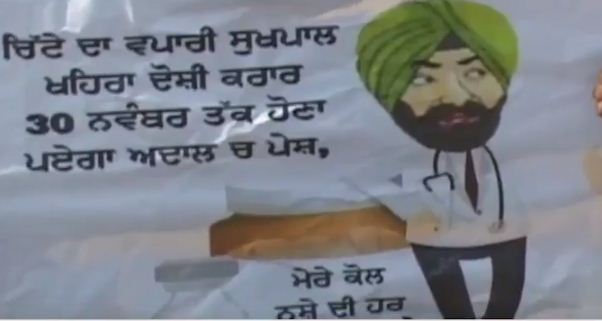 ਚਿੱਟੇ ਦਾ ਵਪਾਰੀ ਸੁਖਪਾਲ
ਖਹਿਰਾ ਦੋਸ਼ੀ ਕਰਾਰ
30 ਨਵੰਬਰ ਤੱਕ ਹੋਣਾ
ਪਏਗਾ ਅਦਾਲ ਚ ਪੇਸ਼,
ਮੇਰੇ ਕੋਲ
ਨਸ਼ੇ ਦੀ ਹਰ